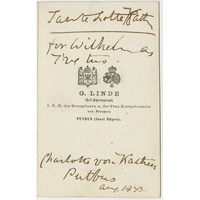 Tante Lotte Kath
for Wilhelm as
G. LINDE
Hof-Photograph
I. K. H. des Kronprinzen u. der Frau Kronprinzessin
von Preussen
PUTBUS (Insel Rügen).
Charlotte von Kathen
Putbus
Aug. 1873.